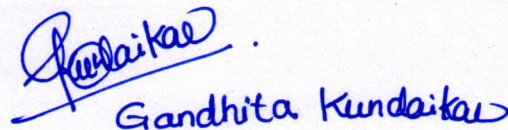 Kundaikar
Gandhita Kundaikar